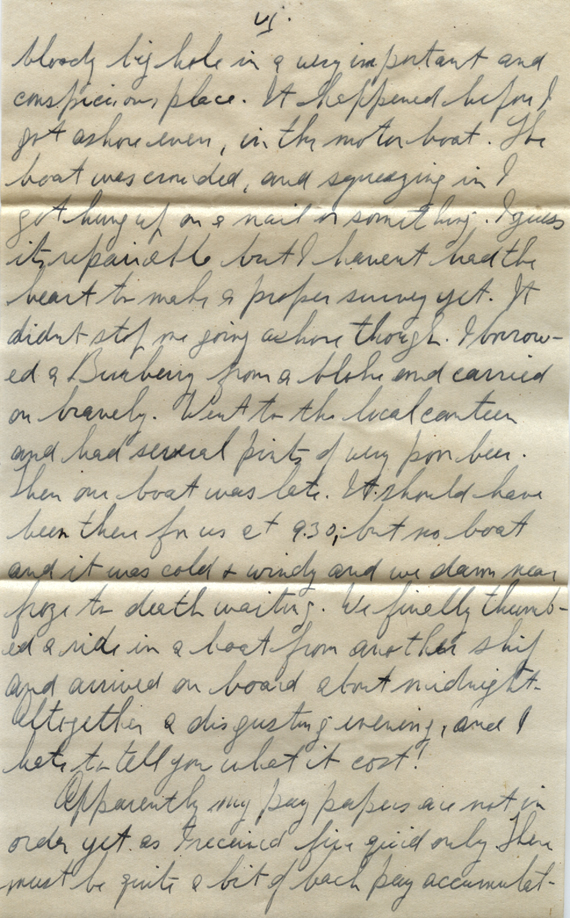 vj.
bloody big hole in a very important and
conspicious place. It happened before I
got ashore even, in the motor boat. The
boat was crowded, and squeezing in I
got hung up on a nail or something. I guess
its repairable but I havent had the
heart to make a proper survey yet. It
didnt stop me going ashore though. I borrow-
ed a Burberry from a bloke and carried
on bravely. Went to the local canteen
and had several pints of very poor beer.
Then our boat was late. It should have
been there for us at 9.30, but no boat
and it was cold & windy and we damn near
froze to death waiting. We finally thumb-
ed a ride in a boat from another ship
and arrived on board about midnight.
Altogether a disgusting evening, and I
hate to tell you what it cost!
Apparently my pay papers are not in
order yet as I received five quid only. There
must be quite a bit of back pay accumulat-